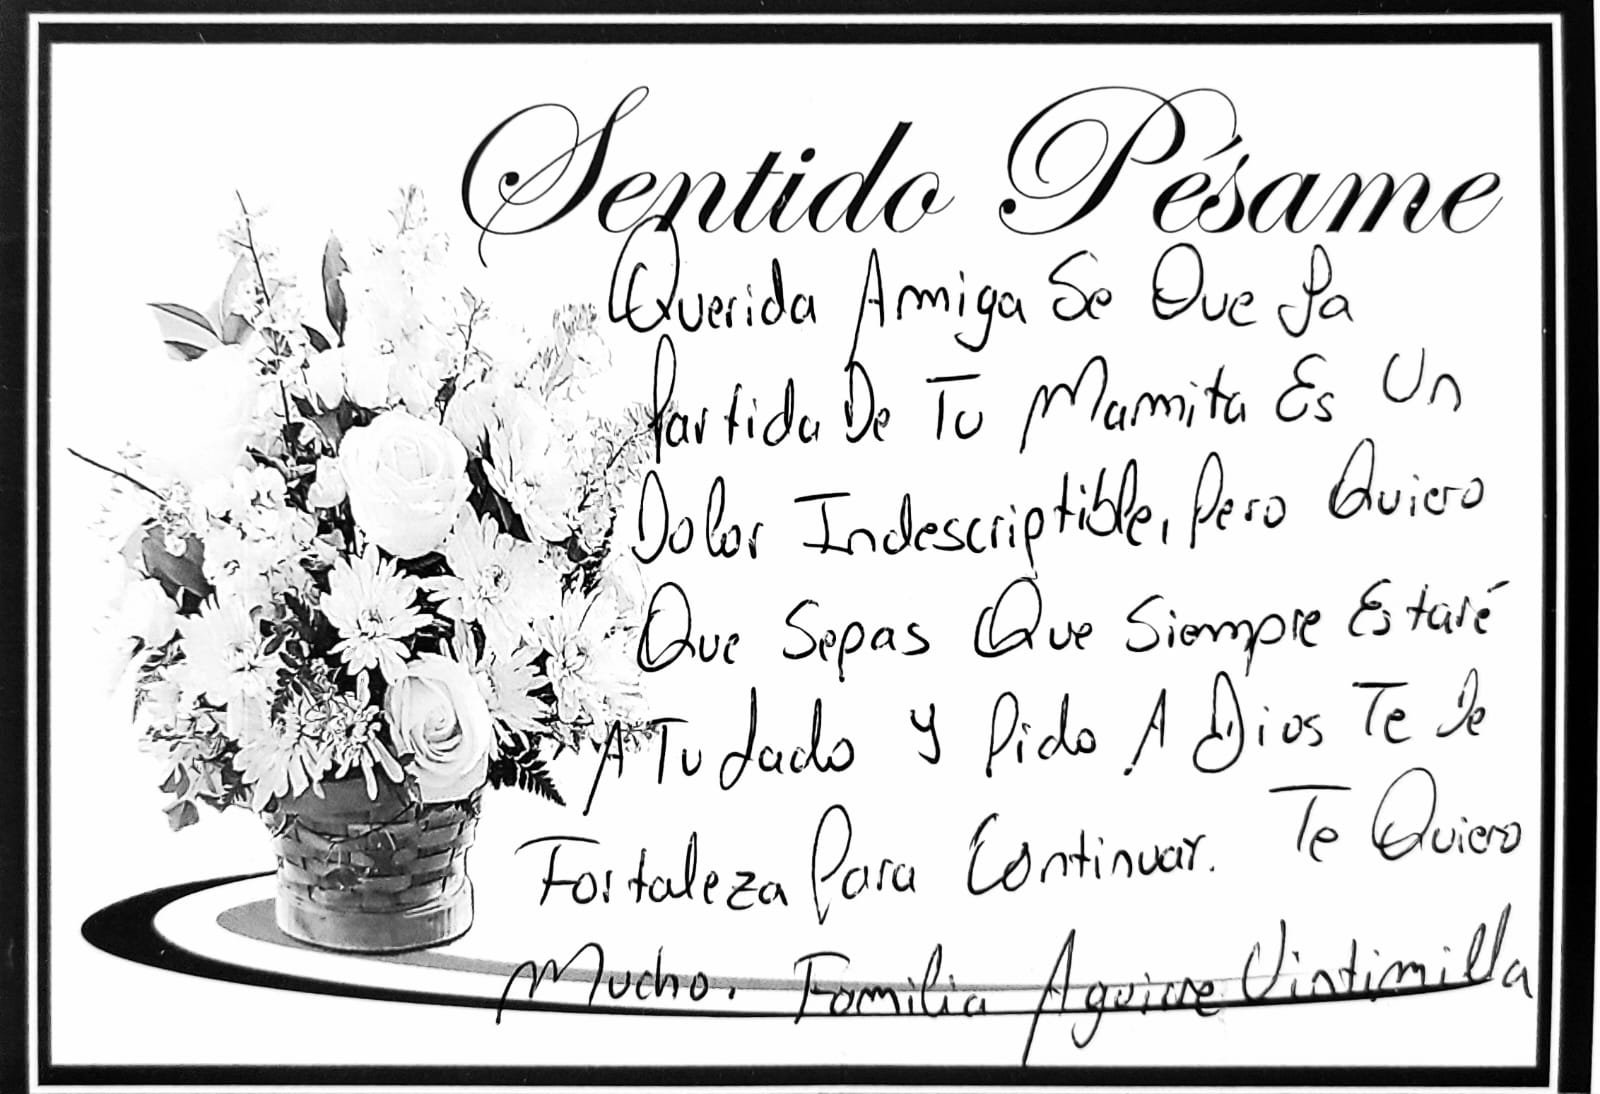 Sentido Pésame
Querida Amiga Se Que La
Partida De Tu Mamita Es Un
Dolor Indescriptible, Pero Quiero
Que Sepas Que Siempre Estaré
A Tu Lado Y Pido A Dios Te De
Fortaleza Para Continuar. Te Quiero
Mucho. Familia Aguirre Vintimilla